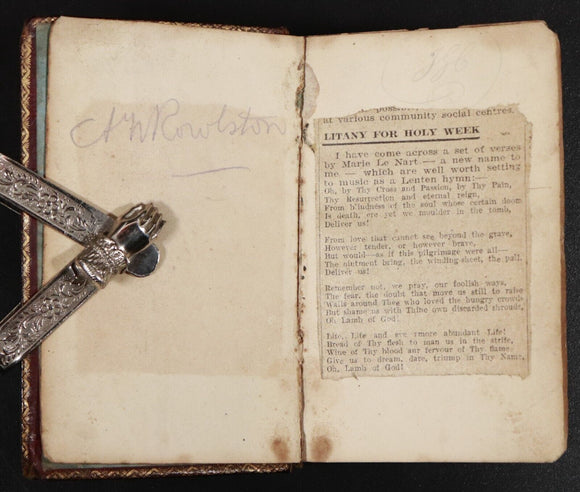 A W Rowlston
386
at various community social centres.
LITANY FOR HOLY WEEK
I have come across a set of verses
by Marie Le Nart — a new name to
me — which are well worth setting
to music as a Lenten hymn:—
Oh, by Thy Cross and Passion, by Thy Pain,
Thy Resurrection and eternal reign,
From blindness of the soul whose certain doom
Is death, ere yet we moulder in the tomb,
Deliver us!
From love that cannot see beyond the grave,
However tender, or however brave,
But would—as if this pilgrimage were all—
The ointment bring, the winding-sheet, the pall.
Deliver us!
Remember not, we pray, our foolish ways,
The fear, the doubt that move us still to raise
Walls around Thee who loved the hungry crowds
But shame us with Thine own discarded shrouds,
Oh Lamb of God!
Life, Life and more abundant Life!
Bread of Thy flesh to man us in the strife,
Wine of Thy blood our fervour of Thy flame
Give us to dream, dare, triump in Thy Name,
Oh, Lamb of God!